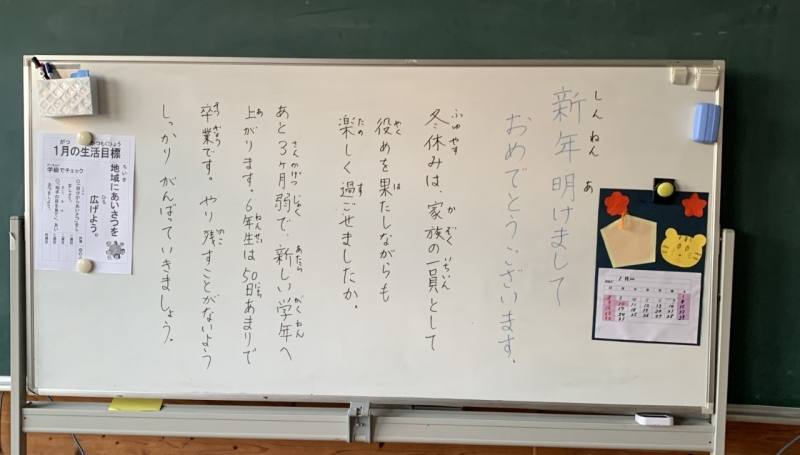 新年明けまして
おめでとうございます。
冬休みは、家族の一員として
役めを果たしながらも
楽しく過ごせましたか。
あと3ヶ月弱で、新しい学年へ
上がります。6年生は50日あまりで
卒業です。やり残すことがないよう
しっかりがんばっていきましょう。
1月の生活目標
地域にあいさつを
広げよう。
学級でチェック